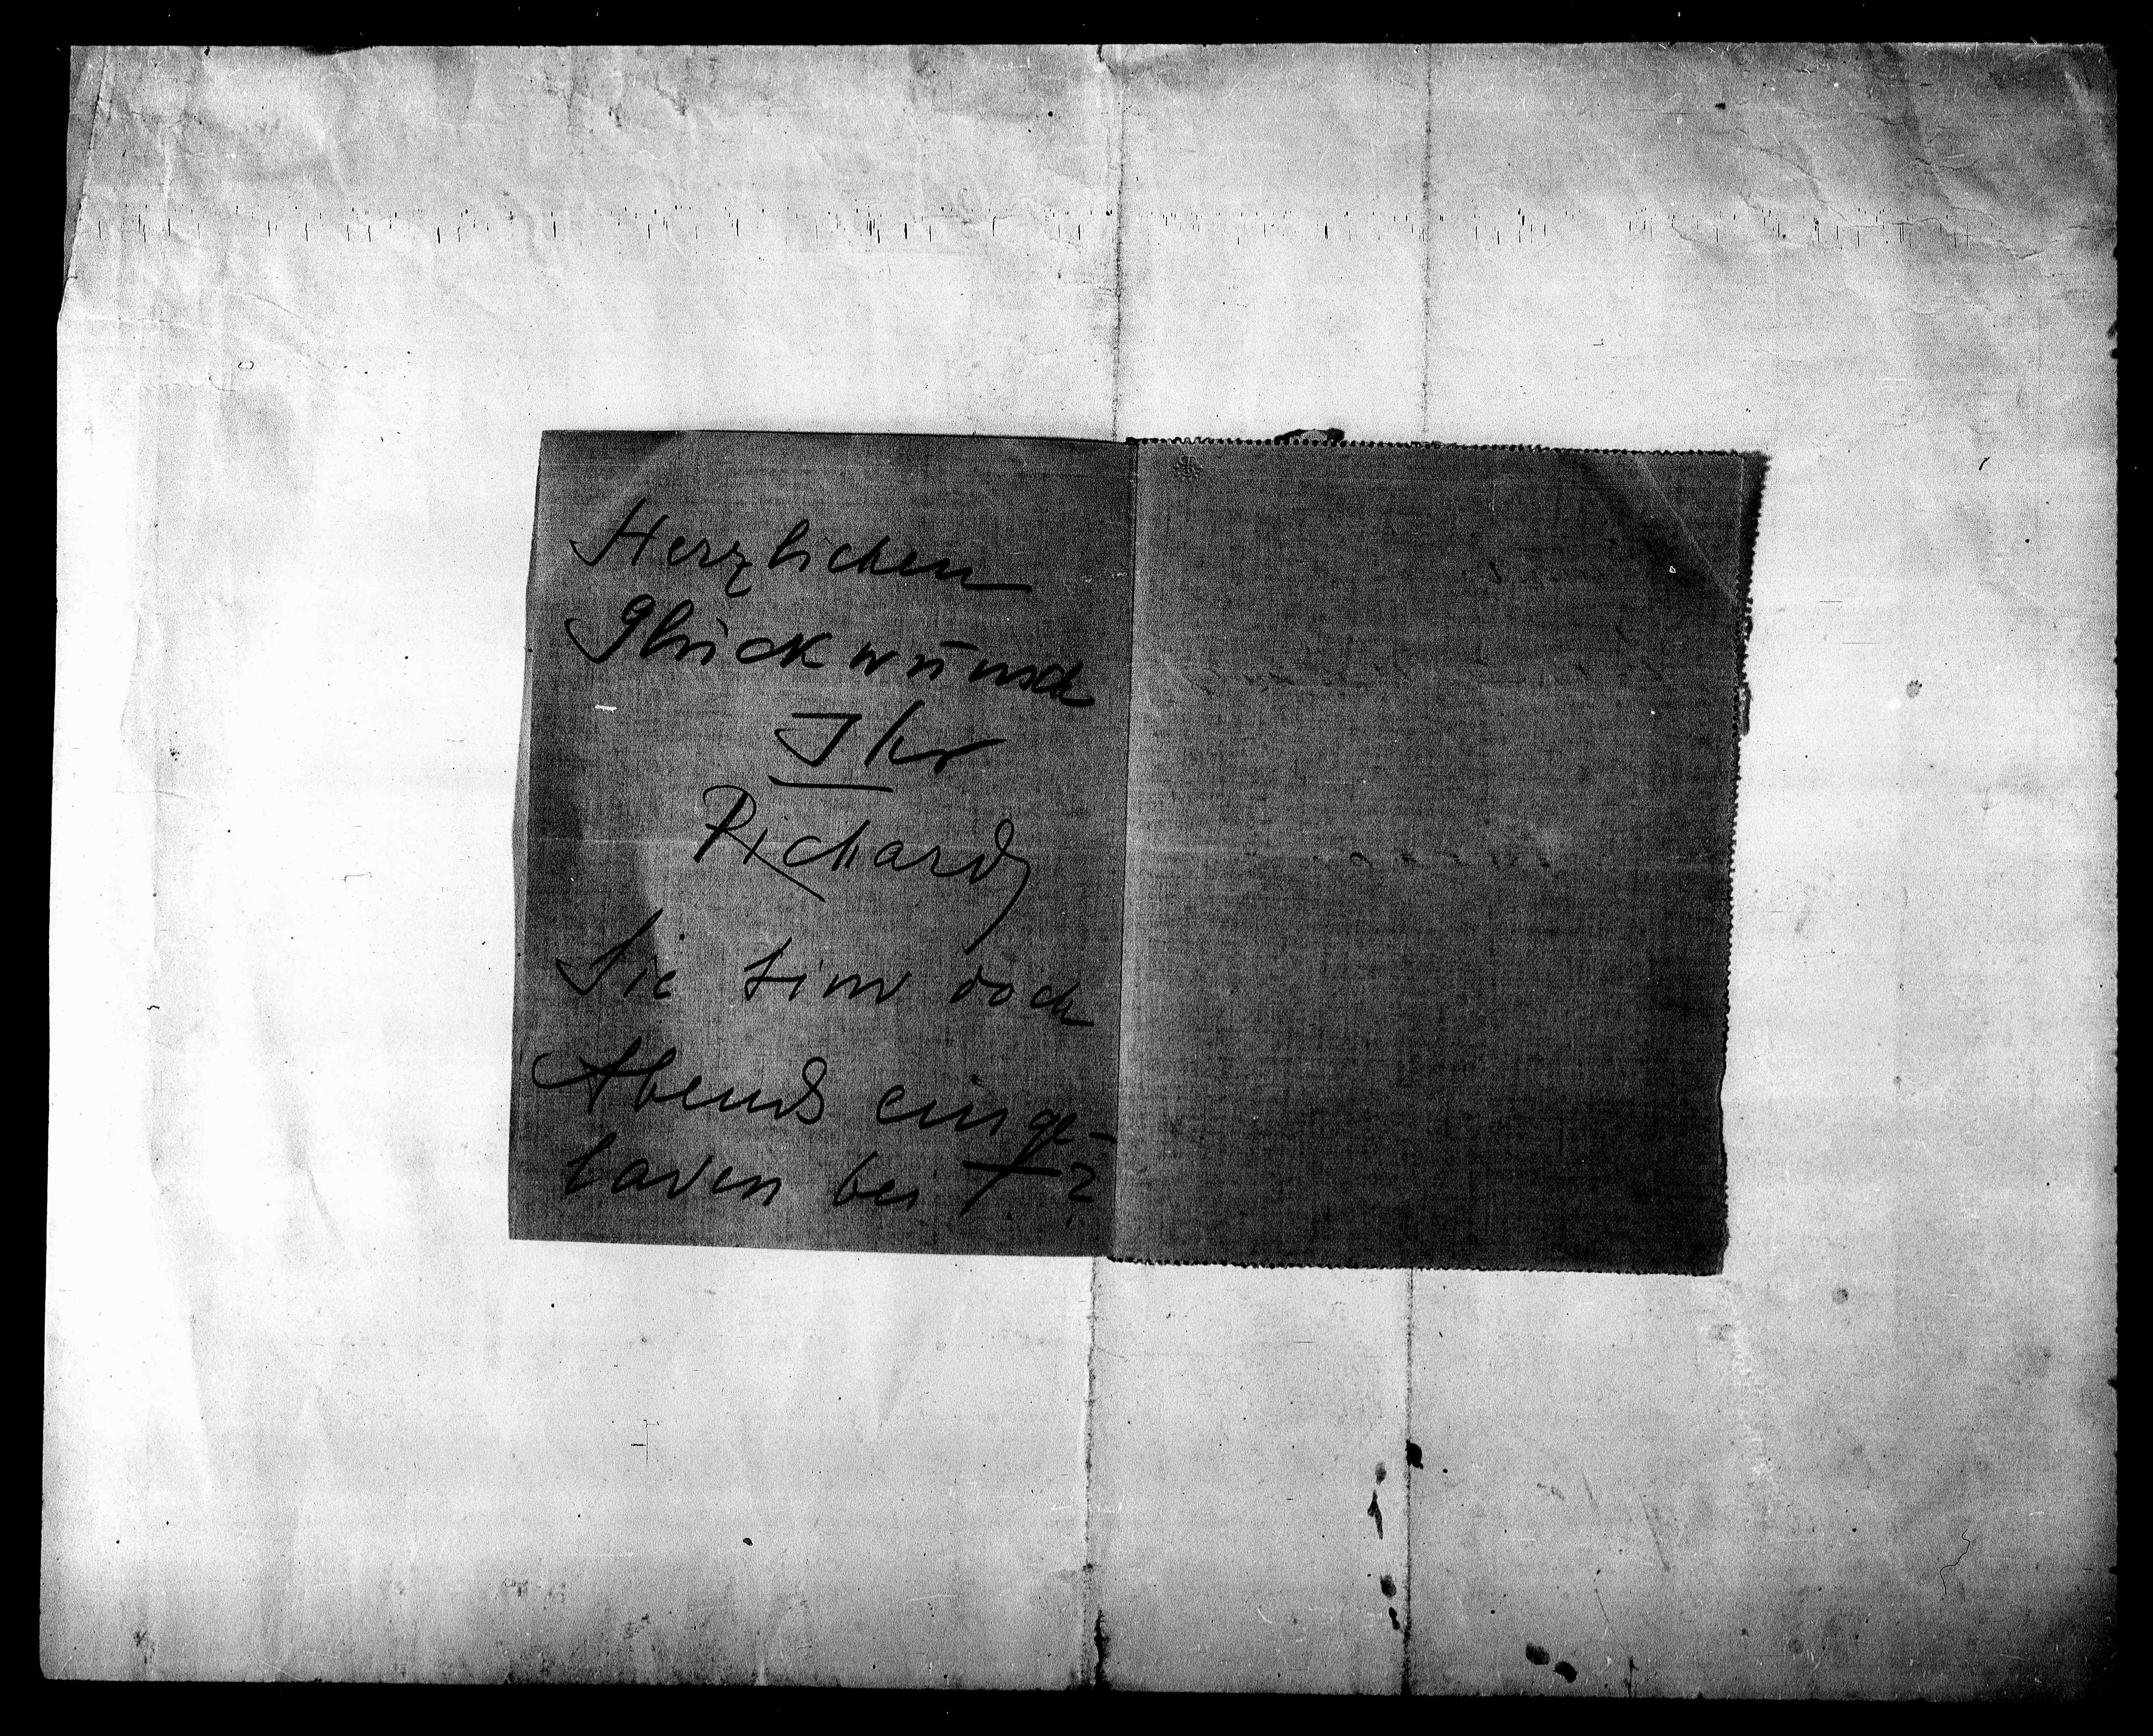 Herzlichen
Glückwunsch
Ihr
Richard
Sie sind doch
Abends einge-
laden bei F?